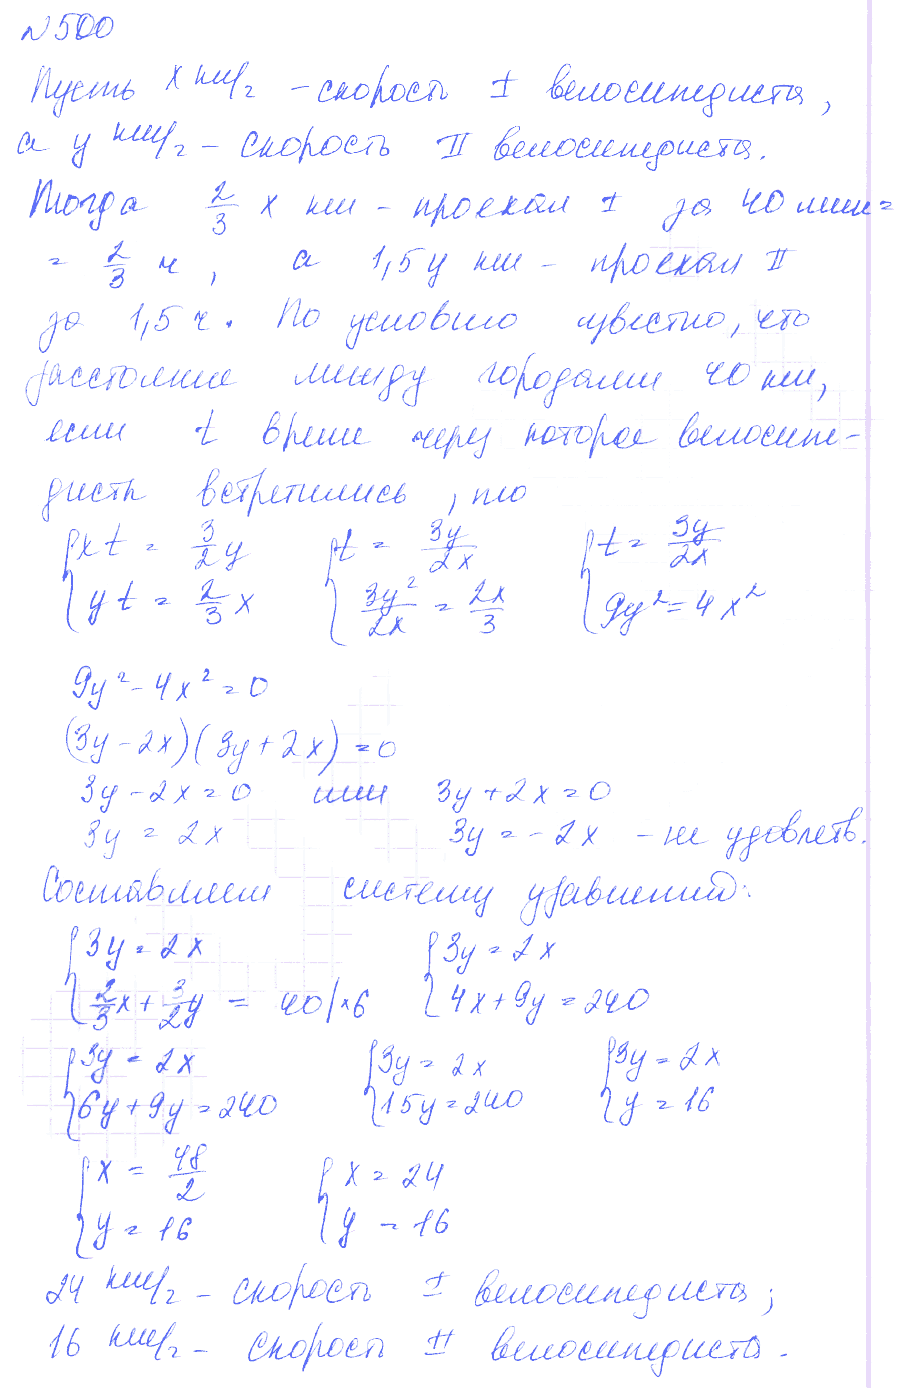 №500
Пусть x км/ч - скорость I велосипедиста,
а y км/ч - скорость II велосипедиста.
Тогда 2/3 x км - проехал I за 40 мин =
= 2/3 ч, а 1,5y км - проехал II
за 1,5 ч. По условию известно, что
расстояние между городами 40 км,
если t время через которое велосипе-
дисты встретились, то
{xt = 3/2 y {t = 3y/2x {t = 3y/2x
{yt = 2/3 x {3y²/2x = 2x/3 {9y² = 4x²
9y² - 4x² = 0
(3y - 2x)(3y + 2x) = 0
3y - 2x = 0 или 3y + 2x = 0
3y = 2x 3y = -2x - не удовлетв.
Составляем систему уравнений:
{3y = 2x {3y = 2x
{2/3 x + 3/2 y = 40 | ×6 {4x + 9y = 240
{3y = 2x {3y = 2x {3y = 2x
{6y + 9y = 240 {15y = 240 {y = 16
{x = 48/2 {x = 24
{y = 16 {y = 16
24 км/ч - скорость I велосипедиста;
16 км/ч - скорость II велосипедиста.